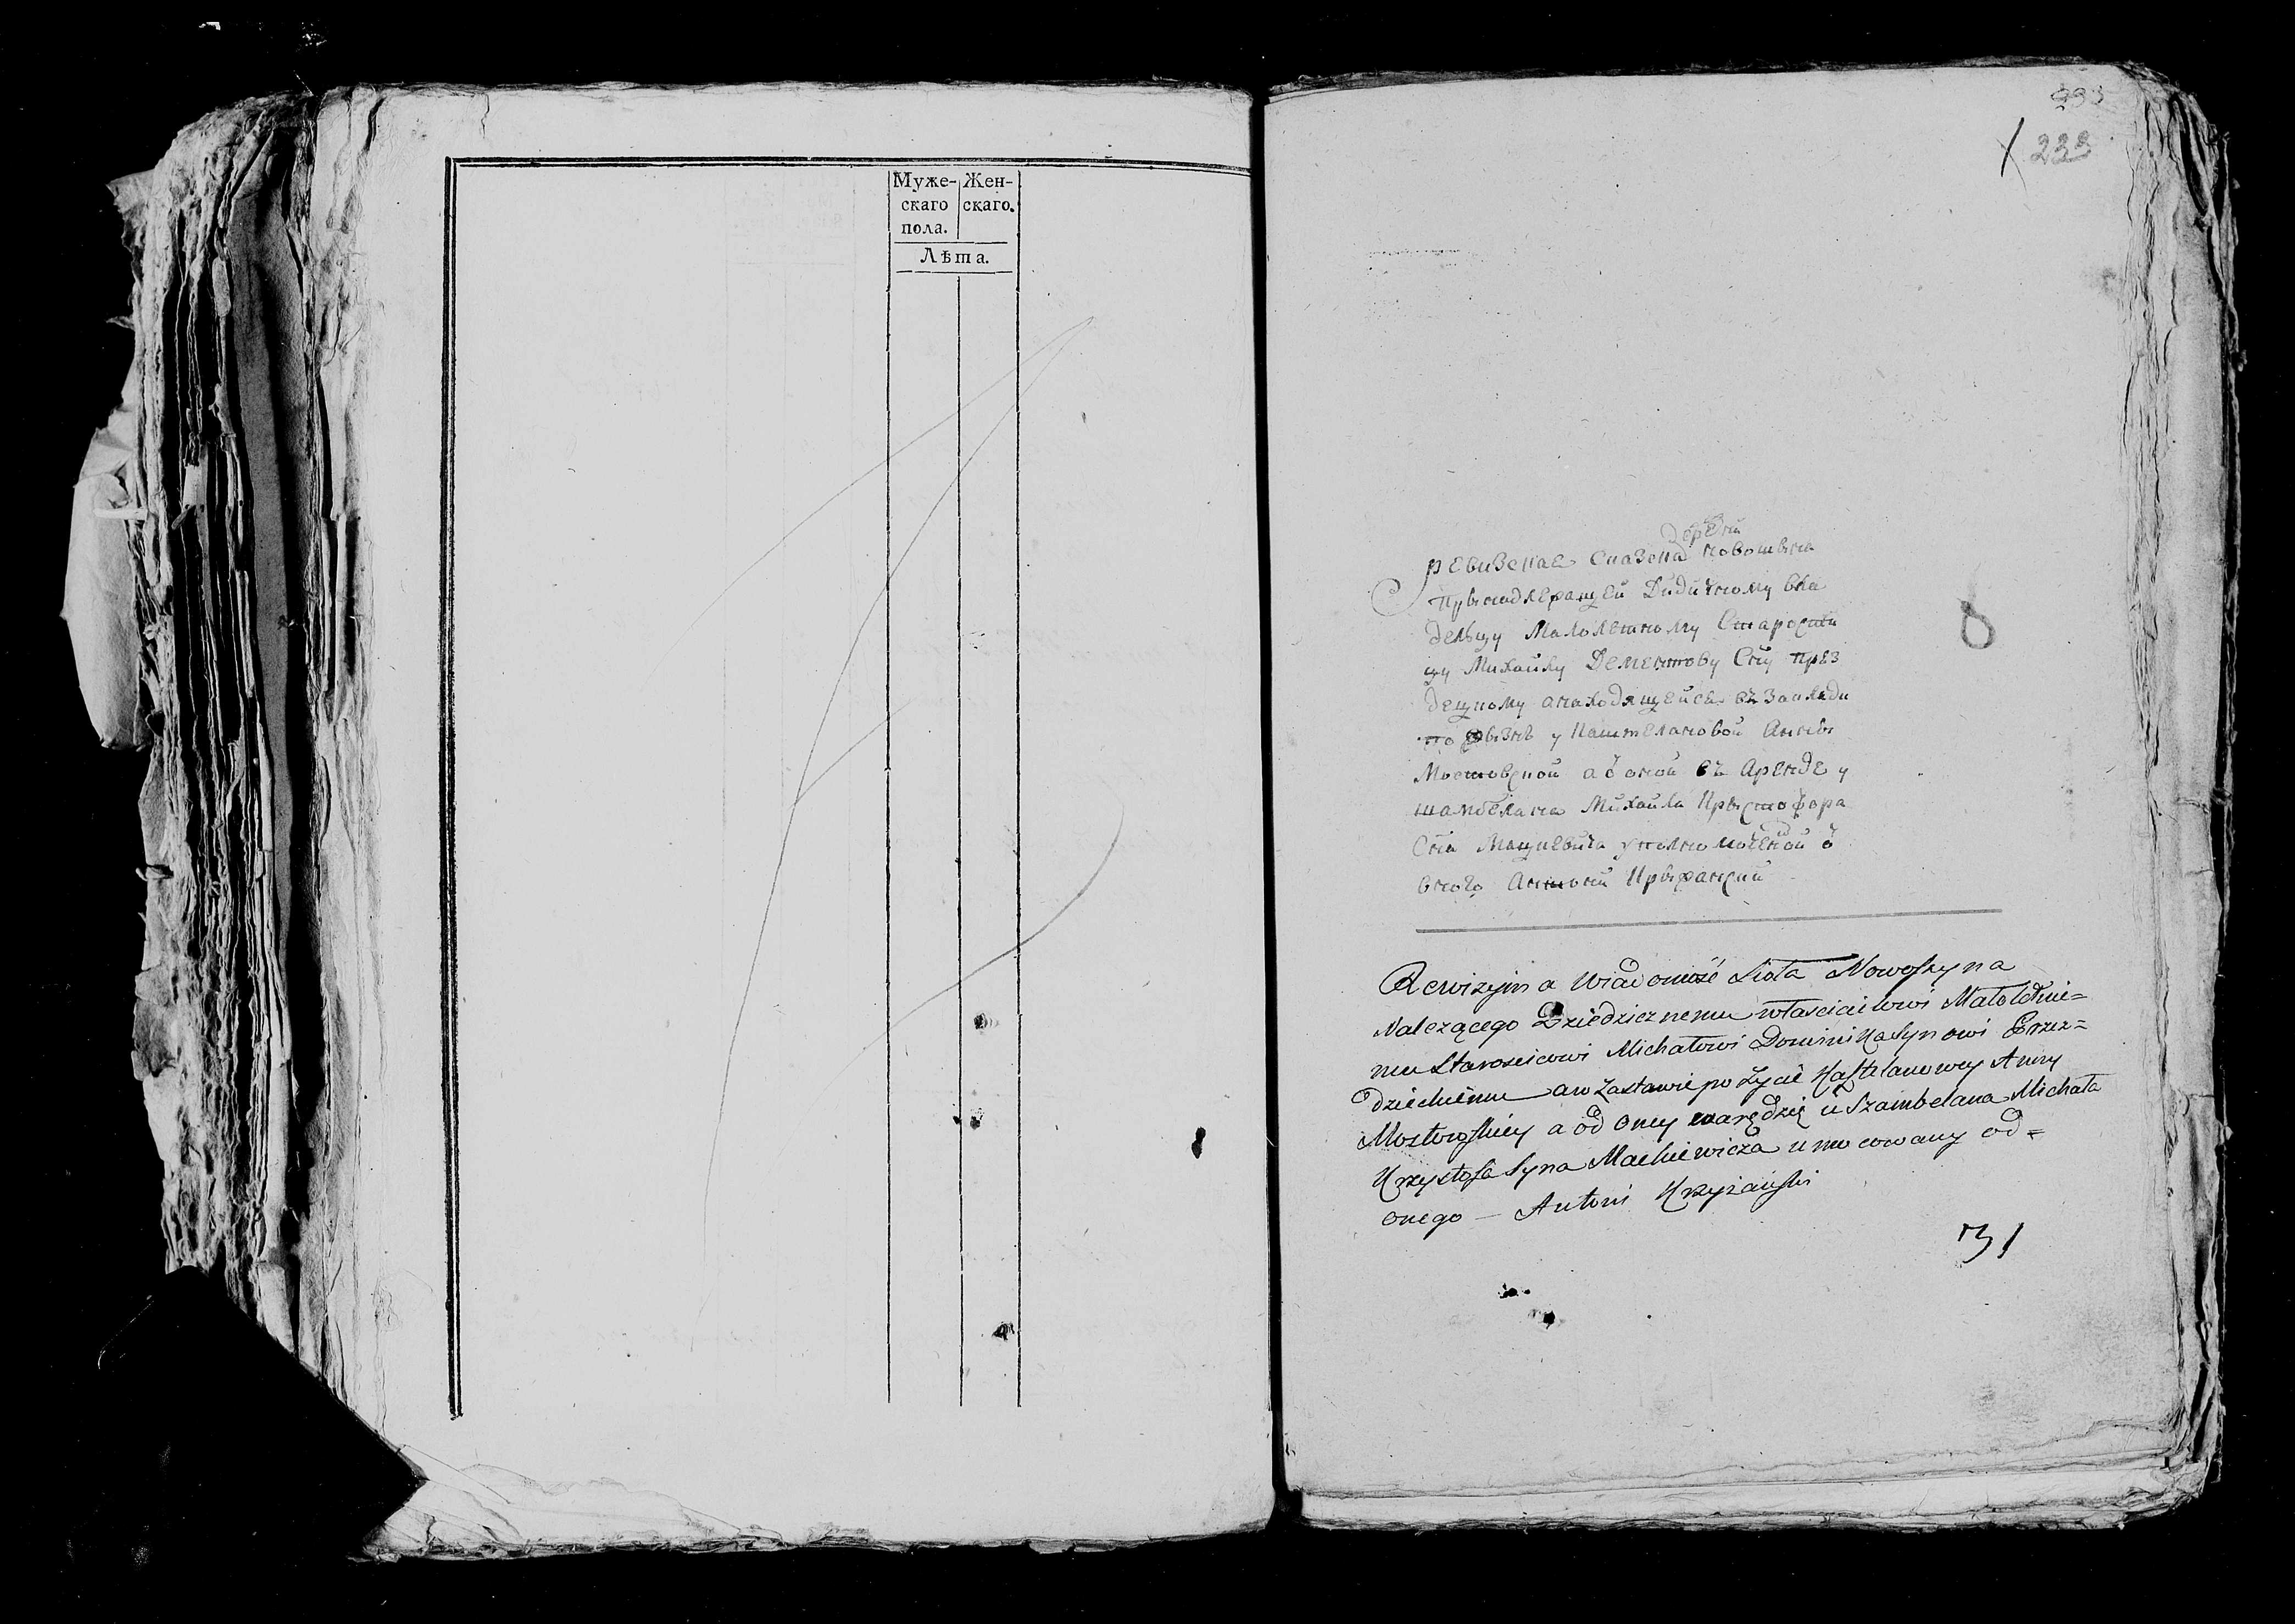 Муже-
скаго
пола.
Жен-
скаго.
Лѣта.
233
деревни
ревизская сказска новошина
принадлежащей Дидичному вла
дельцу Малолетному Старости
цу Михайлу Сну През
децкому анаходящейся въ Заклади
по у Каштелановой Анны
Мостовской а ѿ оной въ Аренде у
шамбеляна Михаила Крыстофора
Сна Мацкевича ѿ
оного Антоний Крыжанский
8
Rewizyina Wiadomość Sioła Nowoszyna
Należącego Dziedzicznemu właścicielowi Małoletnie=
mu Starościcowi Michałowi Dominika Synowi Przez=
dzieckiemu a w Zastawie po Życie Kasztelanowey Anny
Mostowskiey a od oney w arędzie u Szambelana Michała
Krzysztofa Syna Mackiewicza umocowany od=
onego — Antoni Krzyżański
31